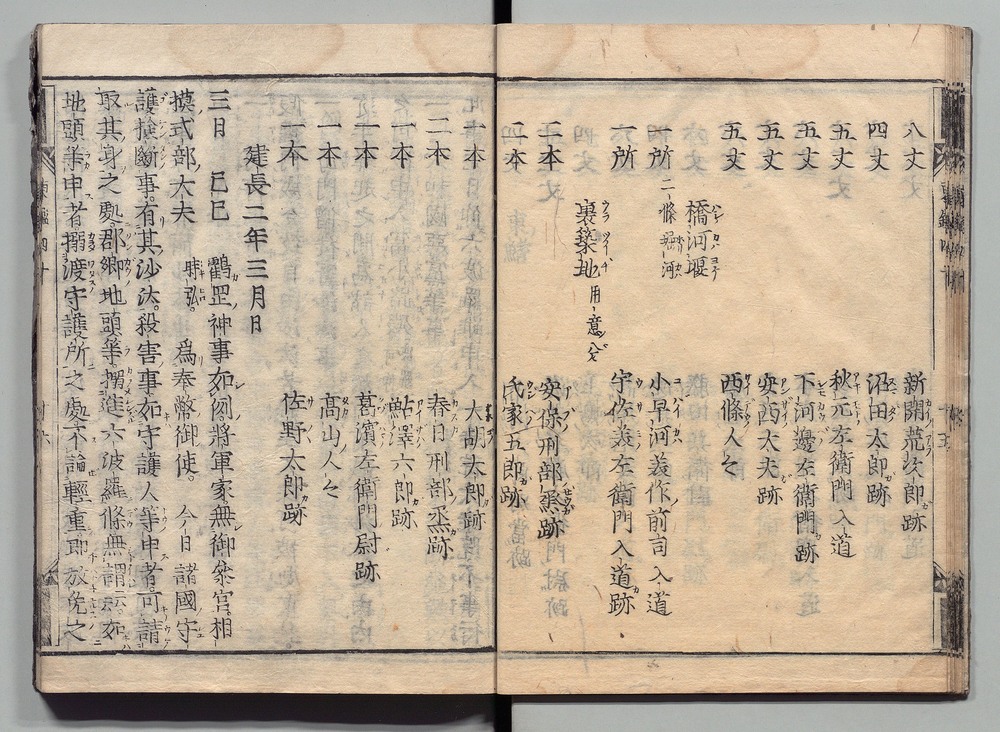 八丈 新開荒次郎跡
四丈 沼田太郎跡
五丈 秋元左衛門入道
五丈 下河邊左衛門跡
五丈 安西大夫跡
五丈 西條人々
橋河堰
一所 二條堀河 小早河美作前司入道
一所 宇佐美左衛門入道跡
裏築地 用意分
二本 安保刑部烝跡
二本 氏家五郎跡
一本 大胡太郎跡
二本 春日刑部烝跡
一本 鮎澤六郎跡
一本 葛濱左衛門尉跡
一本 高山人々
一本 佐野太郎跡
建長二年三月日
三日 己巳 鶴罡神事如例將軍家無御參宮相
摸式部大夫 時弘 爲奉幣御使 今日諸國守
護撿斷事有其沙汰殺害事如守護人等申者可請
取其身之處郡郷地頭等搦進六波羅條無謂云々如
地頭等申者搦渡守護所之處不論輕重即放免之